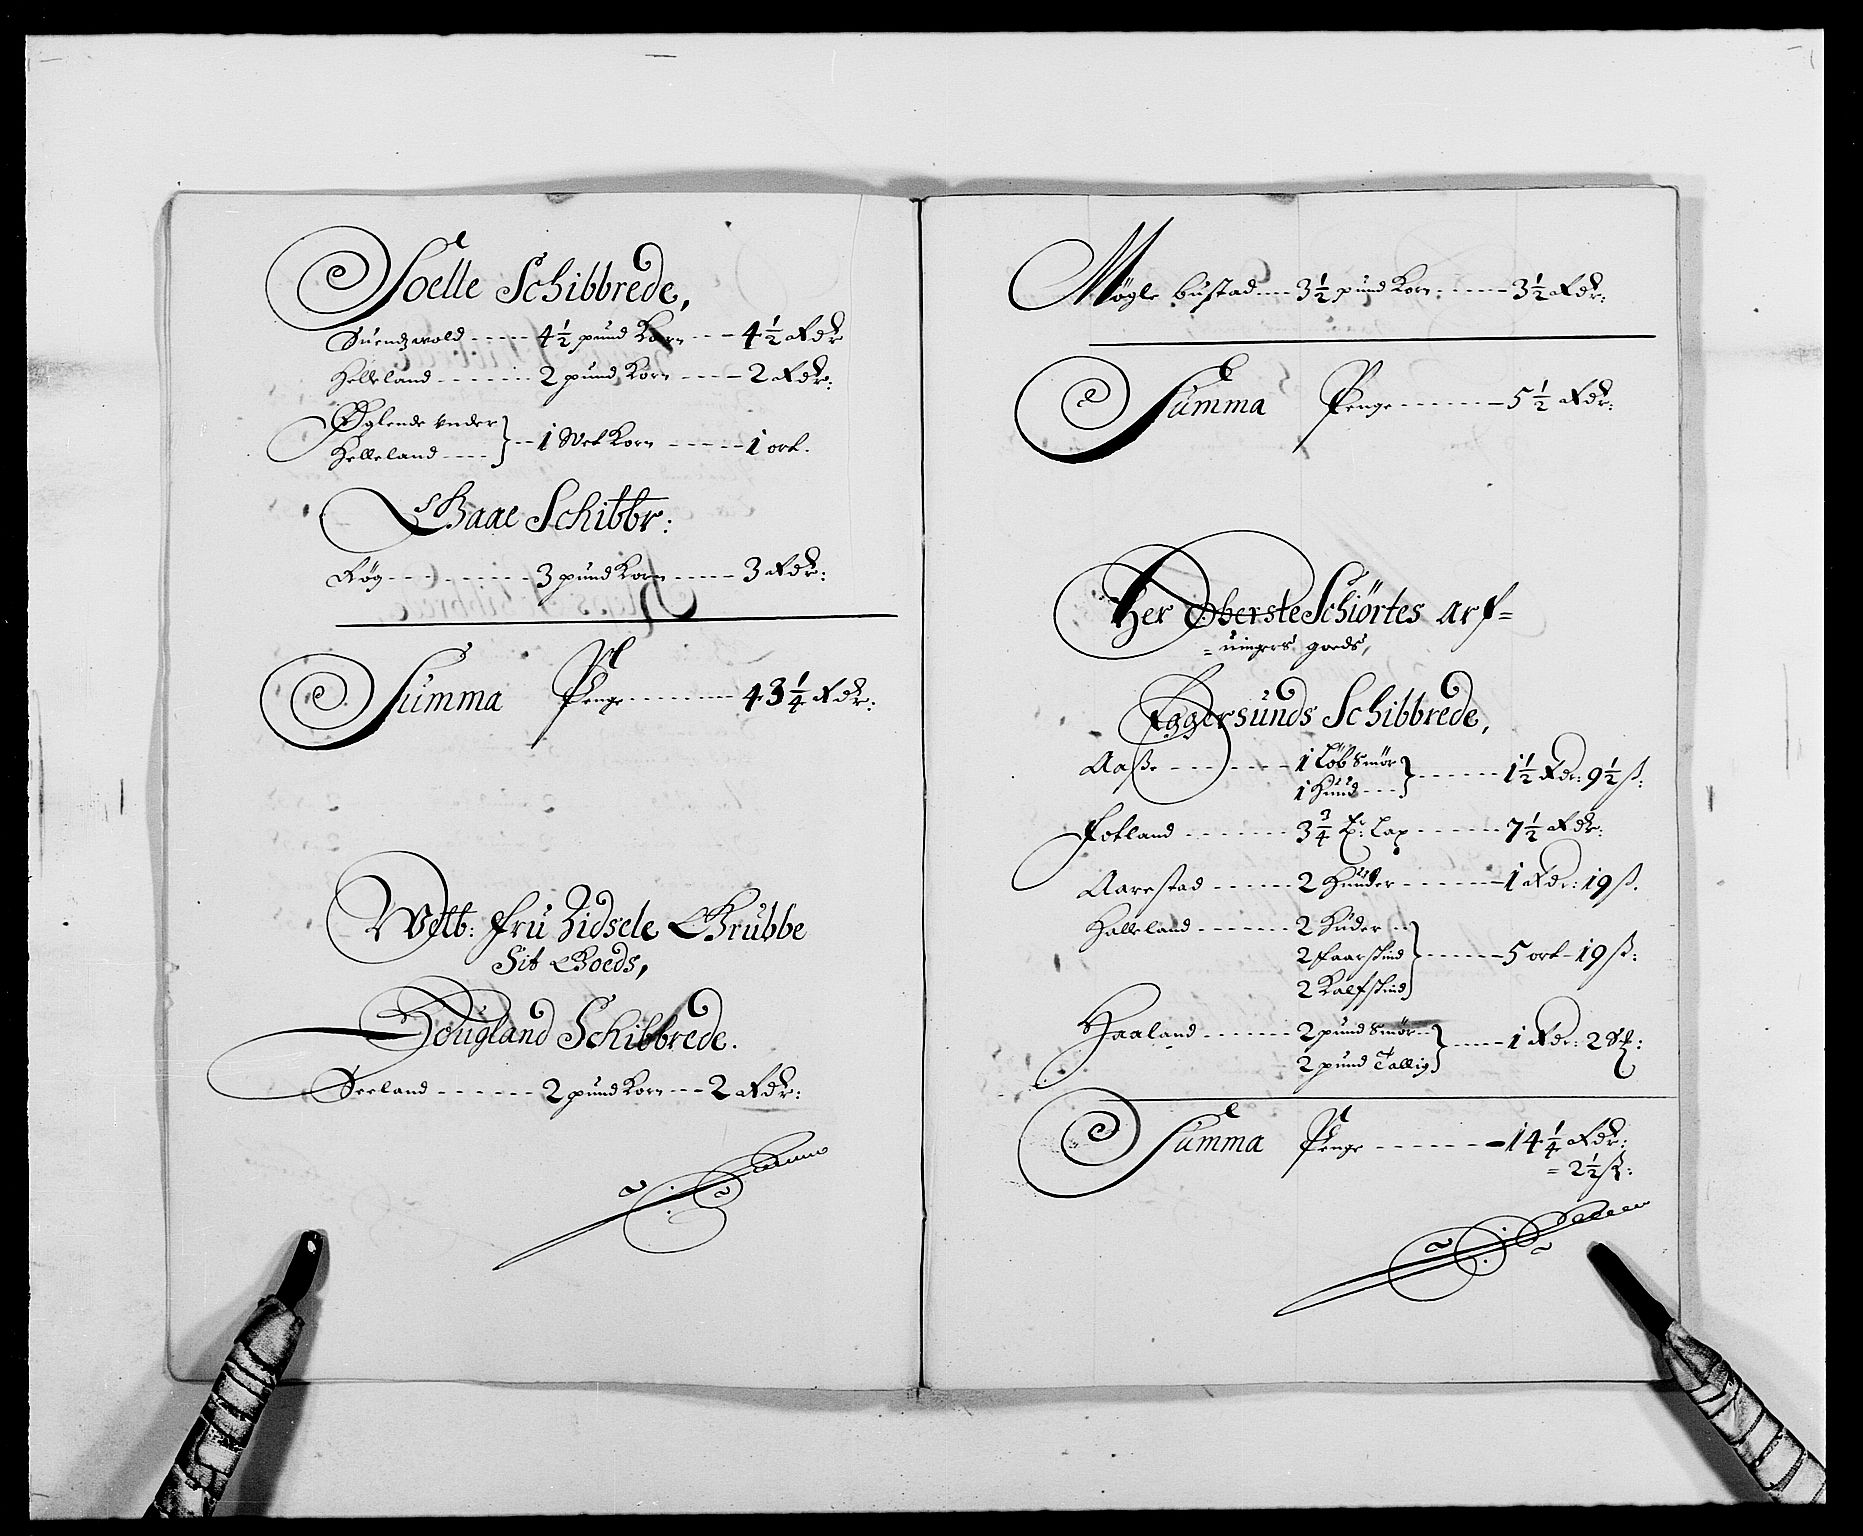 Soelle Schibbrede,
Suendzwold ----- 4½ pund Korn --- 4½ Rdr
Helleland ------ 2 pund Korn ---- 2 Rdr:
Øglende vnder
Helleland ---- } -- 1 Wet Korn ----- 1 ort.
Gaae Schibbr:
Røg --------- 3 pund Korn ----- 3 Rdr:
Summa Penge -------- 43¼ Rdr:
Welb: Fru Zidsele Grubbe
Sit Goeds,
Hougland Schibbrede.
Seeland ------ 2 pund Korn --- 2 Rdr:
Møgle bustad --- 3½ pund Korn ------ 3½ Rdr:
Summa Penge ------- 5½ Rdr:
Her Oberste Schiørtes Arf=
=uingers goeds,
Eggersunds Schibbrede,
Aaße -------- 1 Løb Smør
1 Huud --- } ------ 1½ Rdr: 9½ ß:
Fotland ------- 3¾ t: Lax ------ 7½ Rdr:
Aarestad ----- 2 Huuder ------- 1 Rdr: 19 ß.
Halleland ------ 2 Huder --
2 Faarskind } ------ 5 ort - 19 ß:
2 Kalfskind
Haaland ------ 2 pund Smør --
2 pund Tallig } ----- 1 Rdr: 2 Sk:
Summa Penge ------- 14¼ Rdr:
= 2½ ß: